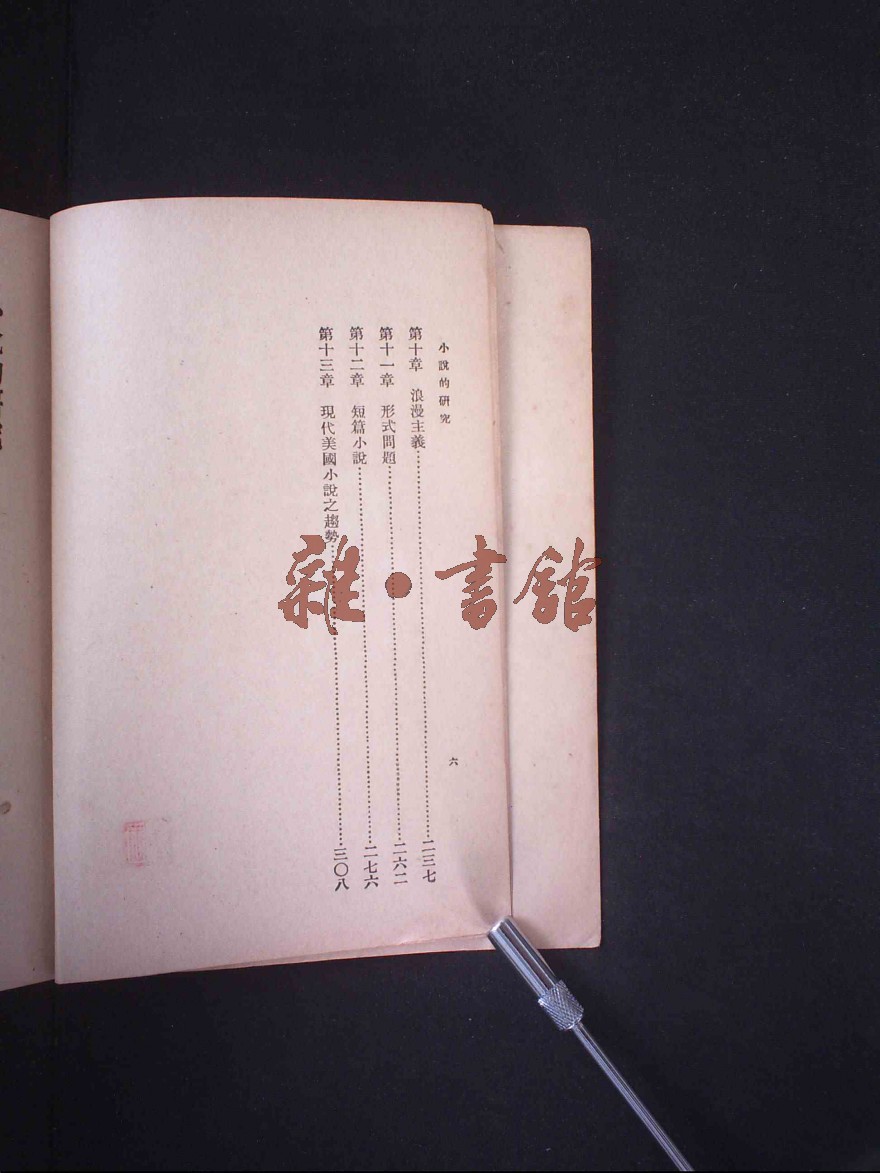 小說的研究
第十章　浪漫主義……二三七
第十一章　形式問題……二六二
第十二章　短篇小說……二七六
第十三章　現代美國小說之趨勢……三〇八
六
雜•書館